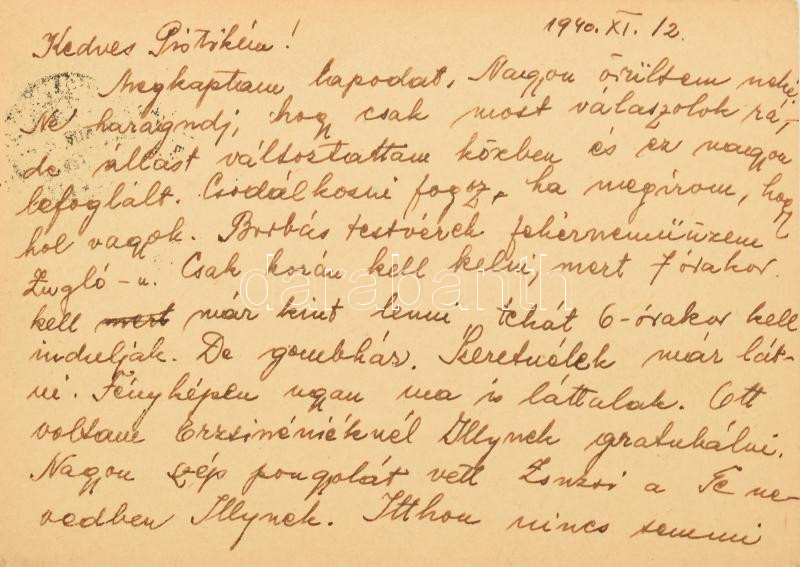 1940. XI. /2.
Kedves Pistikém!
Megkaptam lapodat. Nagyon örültem neki.
Ne haragudj, hogy csak most válaszolok rá,
de állást változtattam közben és ez nagyon
lefoglalt. Csodálkozni fogsz, ha megírom, hogy
hol vagok. Borbás testvérek fehérneműüzem
Zugló-u. Csak korán kell kelni, mert 7 órakor
kell mert már kint lenni tehát 6-órakor kell
induljak. De gombház. Szeretnélek már lát-
ni. Fényképen ugan ma is láttalak. Ott
voltam Erzsinéniéknél Illynek gratulálni.
Nagyon szép pongyolát vett Zsuzsi a Te ne-
vedben Illynek. Itthon nincs semmi
darabanth